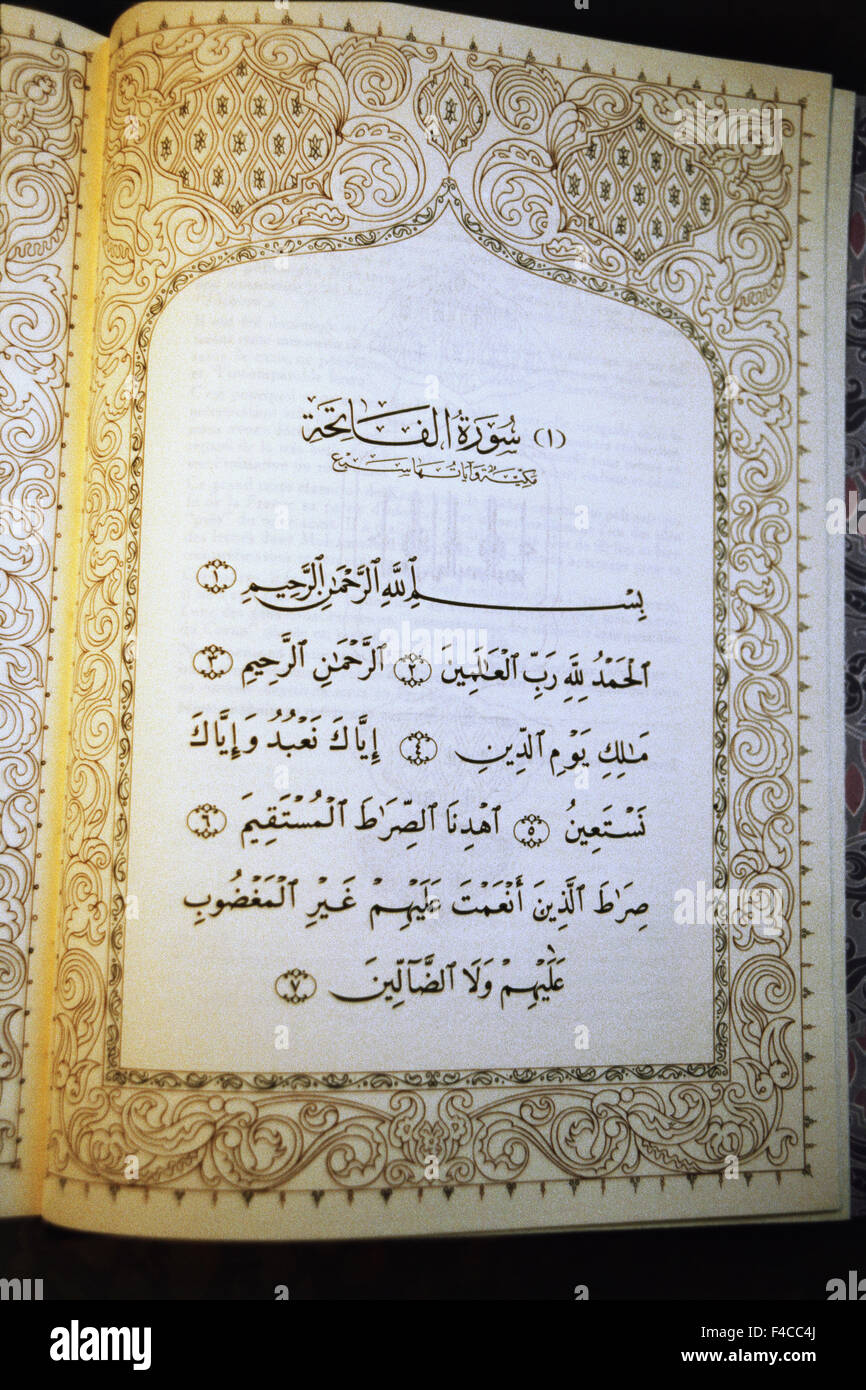 (١) سُورَةُ الفَاتِحَة
مَكِيَّة وَآيَاتُهَا سَبْع
بِسْمِ ٱللَّهِ ٱلرَّحْمَٰنِ ٱلرَّحِيمِ ١
ٱلْحَمْدُ لِلَّهِ رَبِّ ٱلْعَالَمِينَ ٢ ٱلرَّحْمَٰنِ ٱلرَّحِيمِ ٣
مَٰلِكِ يَوْمِ ٱلدِّينِ ٤ إِيَّاكَ نَعْبُدُ وَإِيَّاكَ
نَسْتَعِينُ ٥ ٱهْدِنَا ٱلصِّرَٰطَ ٱلْمُسْتَقِيمَ ٦
صِرَٰطَ ٱلَّذِينَ أَنْعَمْتَ عَلَيْهِمْ غَيْرِ ٱلْمَغْضُوبِ
عَلَيْهِمْ وَلَا ٱلضَّآلِّينَ ٧
alamy stock photo
F4CC4J
www.alamy.com